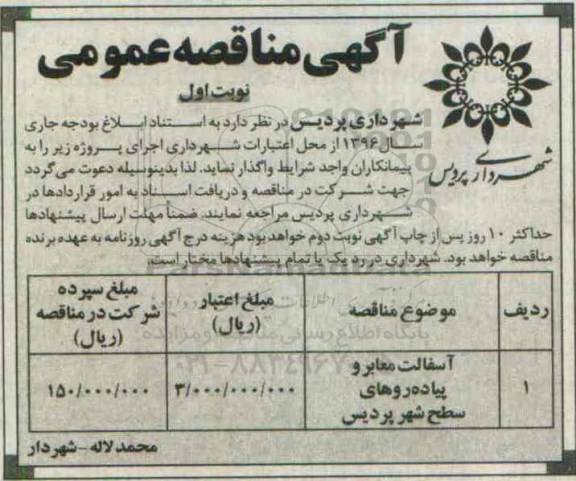 آگهی مناقصه عمومی
نوبت اول
شهرداری پردیس
شهرداری پردیس در نظر دارد به استناد ابلاغ بودجه جاری
سال ۱۳۹۶ از محل اعتبارات شهرداری اجرای پروژه زیر را به
پیمانکاران واجد شرایط واگذار نماید. لذا بدینوسیله دعوت می‌گردد
جهت شرکت در مناقصه و دریافت اسناد به امور قراردادها در
شهرداری پردیس مراجعه نمایند. ضمناً مهلت ارسال پیشنهادها
حداکثر ۱۰ روز پس از چاپ آگهی نوبت دوم خواهد بود هزینه درج آگهی روزنامه به عهده برنده
مناقصه خواهد بود. شهرداری در رد یک یا تمام پیشنهادها مختار است.
ردیف موضوع مناقصه مبلغ اعتبار (ریال) مبلغ سپرده شرکت در مناقصه (ریال)
۱ آسفالت معابر و پیاده‌روهای سطح شهر پردیس ۳/۰۰۰/۰۰۰/۰۰۰ ۱۵۰/۰۰۰/۰۰۰
محمد لاله - شهردار